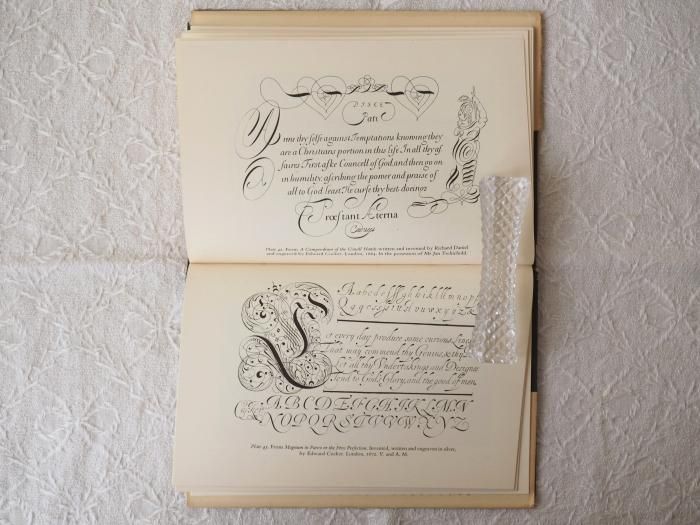 Arme thy selfe against Temptations knowing they
are a Christians portion in this life In all thy af
faires First aske Councell of God, and then go on
in humility, ascribing the power and praise of
all to God least He curse thy best doeings
Præstant Æterna
Caducis
Plate 42. From A Compendium of the Usuall Hands written and invented by Richard Daniel
and engraved by Edward Cocker. London, 1664. In the possession of Mr Jan Tschichold.
Let every day produce some curious Lines
That may commend thy Genius, & thy
Let all thy Undertakings and Designes
Tend to Gods Glory, and the good of men.
A B C D E F G H I K L M N
N O P Q R S T V W X Y Z
Plate 43. From Magnum in Parvo or the Pens Perfection. Invented, written and engraven in silver,
by Edward Cocker. London, 1672. V. and A. M.